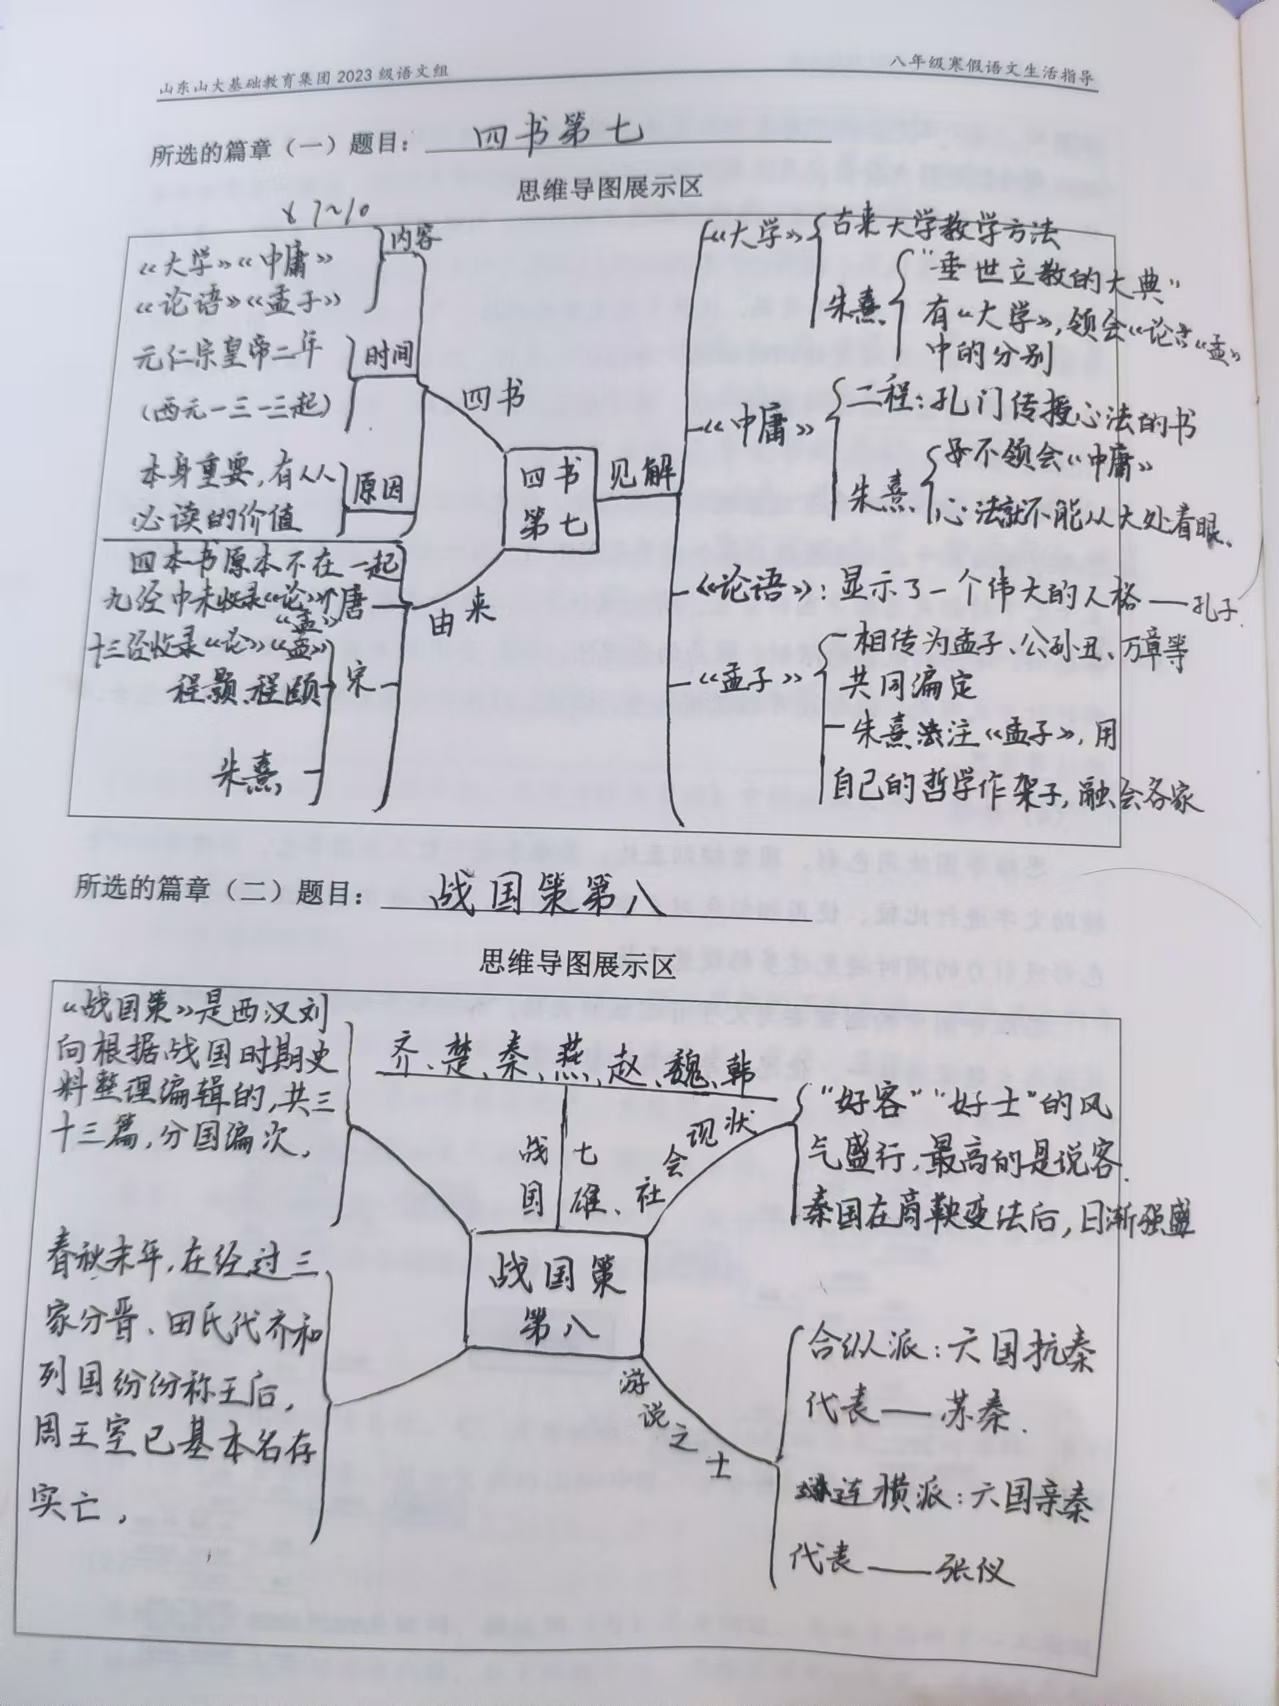 山东山大基础教育集团 2023 级语文组
八年级寒假语文生活指导
所选的篇章（一）题目：四书第七
思维导图展示区
7~10
《大学》《中庸》
《论语》《孟子》
内容
元仁宗皇帝二年
(西元一三一三起)
时间
本身重要，有人人
必读的价值
原因
四书
四本书原本不在一起
九经中未收录《论》《孟》
唐
十三经收录《论》《孟》
程颢、程颐
朱熹
宋
由来
四书
第七
见解
《大学》
古来大学教学方法
朱熹
"垂世立教的大典"
有《大学》，领会《论》《孟》
中的分别
《中庸》
二程：孔门传授心法的书
朱熹
毋不领会《中庸》
心法就不能从大处着眼。
《论语》：显示了一个伟大的人格——孔子.
《孟子》
相传为孟子、公孙丑、万章等
共同编定
朱熹注《孟子》，用
自己的哲学作架子，融会各家
所选的篇章（二）题目：战国策第八
思维导图展示区
《战国策》是西汉刘
向根据战国时期史
料整理编辑的，共三
十三篇，分国编次，
齐、楚、秦、燕、赵、魏、韩
战国七雄、
社会现状
"好客""好士"的风
气盛行，最高的是说客.
秦国在商鞅变法后，日渐强盛
战国策
第八
春秋末年，在经过三
家分晋、田氏代齐和
列国纷纷称王后，
周王室已基本名存
实亡，
游说之士
合纵派：六国抗秦
代表——苏秦.
连横派：六国亲秦
代表——张仪